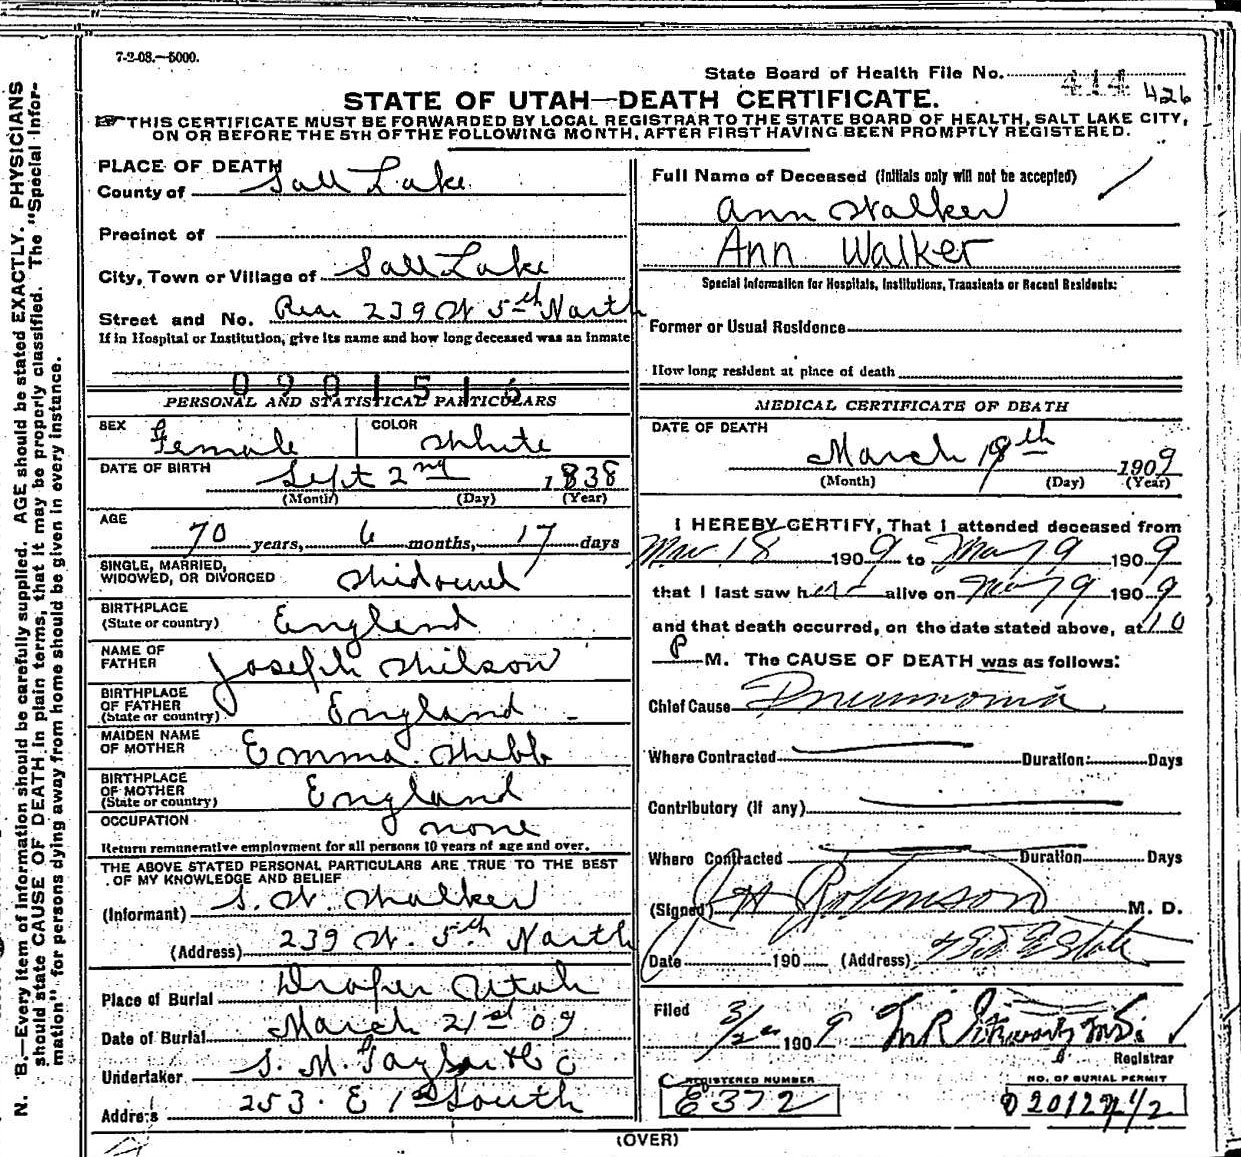 7-2-08.—5000.
State Board of Health File No. 414 426
STATE OF UTAH—DEATH CERTIFICATE.
THIS CERTIFICATE MUST BE FORWARDED BY LOCAL REGISTRAR TO THE STATE BOARD OF HEALTH, SALT LAKE CITY,
ON OR BEFORE THE 5TH OF THE FOLLOWING MONTH, AFTER FIRST HAVING BEEN PROMPTLY REGISTERED.
PLACE OF DEATH
County of Salt Lake
Precinct of
City, Town or Village of Salt Lake
Street and No. Rear 239 W 5th North
If in Hospital or Institution, give its name and how long deceased was an inmate
0901516
PERSONAL AND STATISTICAL PARTICULARS
SEX Female COLOR White
DATE OF BIRTH Sept 2nd 1838
(Month) (Day) (Year)
AGE
70 years, 6 months, 17 days
SINGLE, MARRIED,
WIDOWED, OR DIVORCED Widowed
BIRTHPLACE
(State or country) England
NAME OF
FATHER Joseph Wilson
BIRTHPLACE
OF FATHER
(State or country) England
MAIDEN NAME
OF MOTHER Emma Webb
BIRTHPLACE
OF MOTHER
(State or country) England
OCCUPATION none
Return remunerative employment for all persons 10 years of age and over.
THE ABOVE STATED PERSONAL PARTICULARS ARE TRUE TO THE BEST
OF MY KNOWLEDGE AND BELIEF
(Informant) S. W. Walker
(Address) 239 W. 5th North
Place of Burial Draper Utah
Date of Burial March 21st 09
Undertaker S. M. Taylor & Co
Address 253 E 1st South
Full Name of Deceased (Initials only will not be accepted)
Ann Walker
Ann Walker
Special Information for Hospitals, Institutions, Transients or Recent Residents:
Former or Usual Residence
How long resident at place of death
MEDICAL CERTIFICATE OF DEATH
DATE OF DEATH
March 19th 1909
(Month) (Day) (Year)
I HEREBY CERTIFY, That I attended deceased from
Mar 18 1909 to Mar 19 1909
that I last saw her alive on Mar 19 1909
and that death occurred, on the date stated above, at 10
P M. The CAUSE OF DEATH was as follows:
Chief Cause Pneumonia
Where Contracted Duration: Days
Contributory (if any)
Where Contracted Duration Days
(Signed) J H Robinson M. D.
Date 190 (Address) E State
Filed 3/20 1909 M.D.
Registrar
REGISTERED NUMBER
E 372
NO. OF BURIAL PERMIT
(OVER)
N. B.—Every item of information should be carefully supplied. AGE should be stated EXACTLY. PHYSICIANS
should state CAUSE OF DEATH in plain terms, that it may be properly classified. The "Special Infor-
mation" for persons dying away from home should be given in every instance.